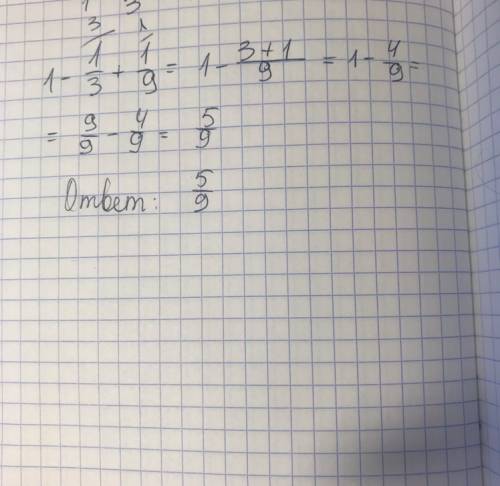 1 3
3 1
1 - 1/3 + 1/9 = 1 - (3+1)/9 = 1 - 4/9 =
= 9/9 - 4/9 = 5/9
Ответ: 5/9